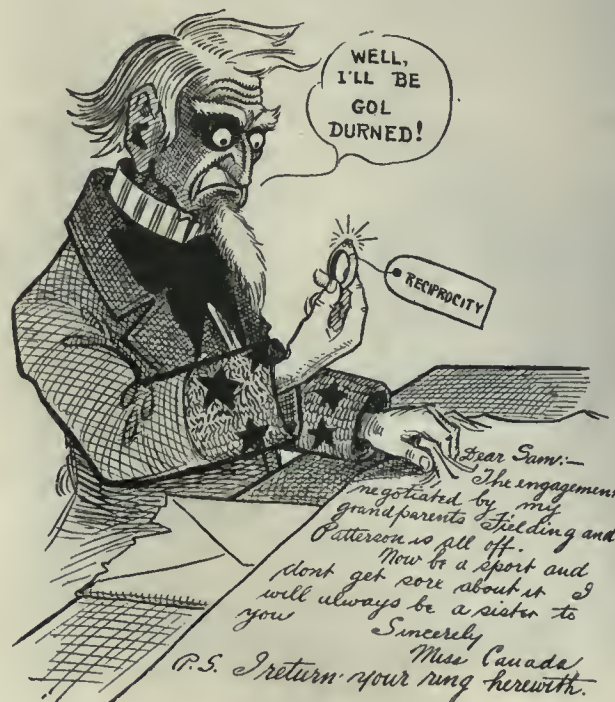 WELL,
I'LL BE
GOL
DURNED!
RECIPROCITY
Dear Sam:—
The engagement
negotiated by my
grandparents Fielding and
Patterson is all off.
Now be a sport and
dont get sore about it I
will always be a sister to
you
Sincerely
Miss Canada
P.S. I return your ring herewith.